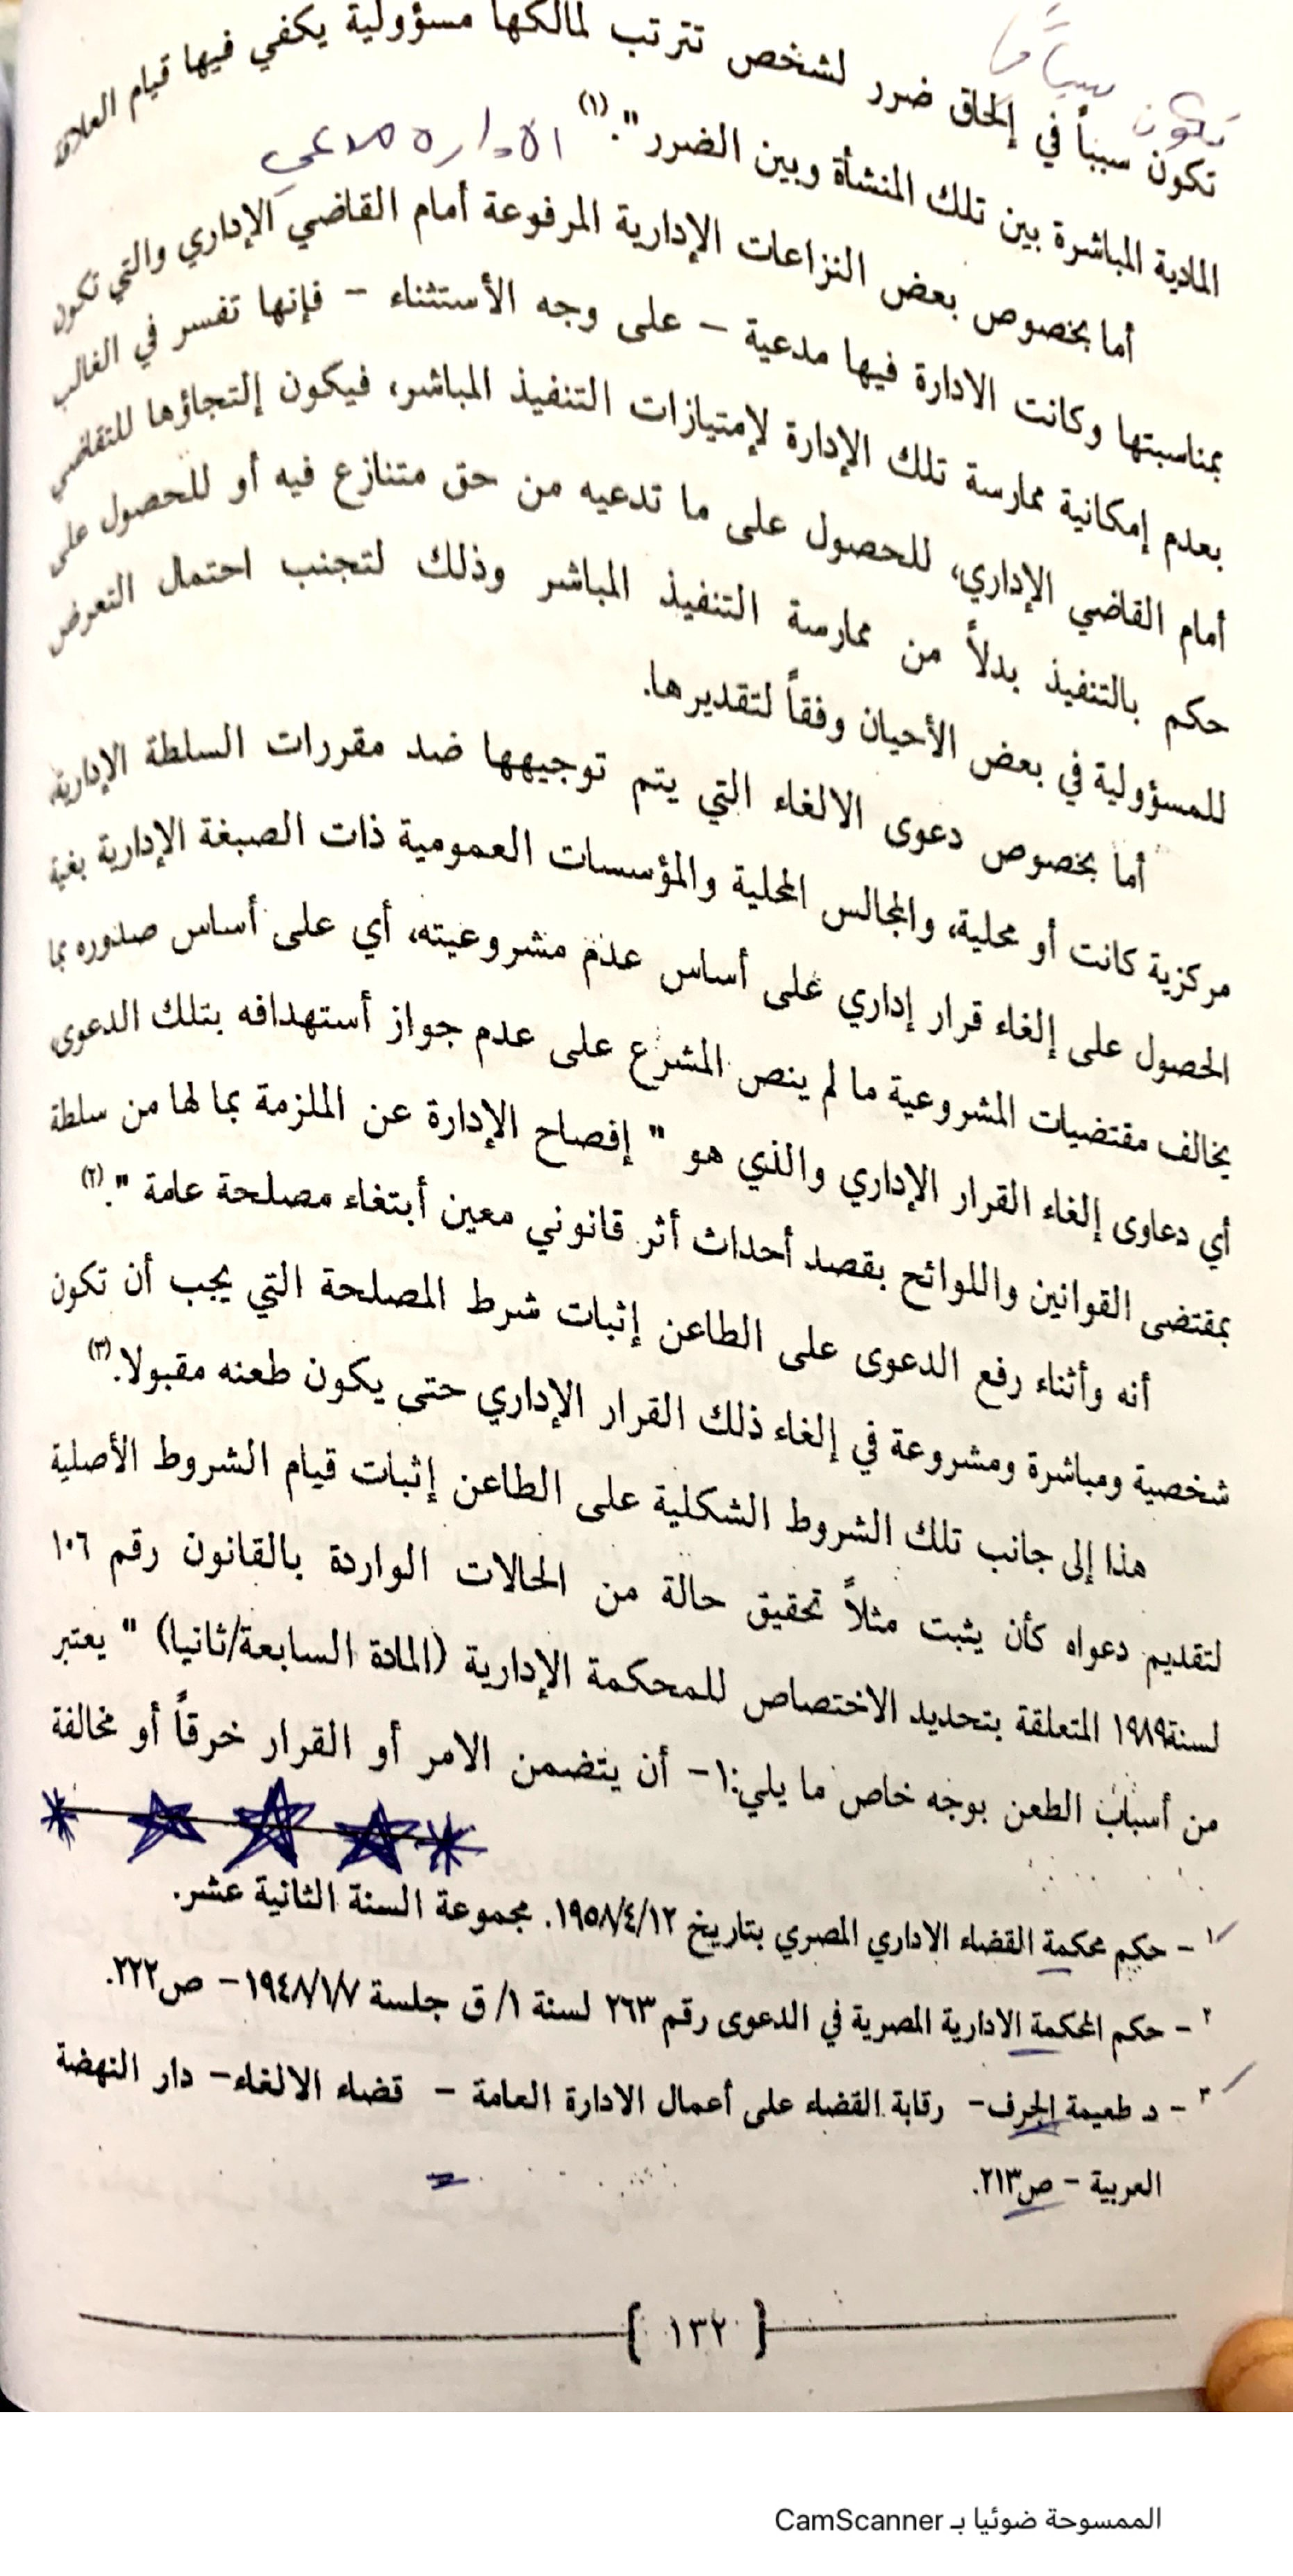 تكون سبباً في إلحاق ضرر لشخص تترتب لمالكها مسؤولية يكفي فيها قيام العلاقة
المادية المباشرة بين تلك المنشأة وبين الضرر".(١)
الاداره مدعي
أما بخصوص بعض النزاعات الإدارية المرفوعة أمام القاضي الإداري والتي تكون
بمناسبتها وكانت الادارة فيها مدعية – على وجه الأستثناء – فإنها تفسر في الغالب
بعدم إمكانية ممارسة تلك الإدارة لإمتيازات التنفيذ المباشر، فيكون إلتجاؤها للتقاضي
أمام القاضي الإداري، للحصول على ما تدعيه من حق متنازع فيه أو للحصول على
حكم بالتنفيذ بدلاً من ممارسة التنفيذ المباشر وذلك لتجنب احتمال التعرض
للمسؤولية في بعض الأحيان وفقاً لتقديرها.
أما بخصوص دعوى الالغاء التي يتم توجيهها ضد مقررات السلطة الإدارية
مركزية كانت أو محلية، والمجالس المحلية والمؤسسات العمومية ذات الصبغة الإدارية بغية
الحصول على إلغاء قرار إداري على أساس عدم مشروعيته، أي على أساس صدوره بما
يخالف مقتضيات المشروعية ما لم ينص المشرع على عدم جواز أستهدافه بتلك الدعوى
أي دعاوى إلغاء القرار الإداري والذي هو " إفصاح الإدارة عن الملزمة بما لها من سلطة
بمقتضى القوانين واللوائح بقصد أحداث أثر قانوني معين أبتغاء مصلحة عامة ".(٢)
أنه وأثناء رفع الدعوى على الطاعن إثبات شرط المصلحة التي يجب أن تكون
شخصية ومباشرة ومشروعة في إلغاء ذلك القرار الإداري حتى يكون طعنه مقبولا.(٣)
هذا إلى جانب تلك الشروط الشكلية على الطاعن إثبات قيام الشروط الأصلية
لتقديم دعواه كأن يثبت مثلاً تحقيق حالة من الحالات الواردة بالقانون رقم ١٠٦
لسنة١٩٨٩ المتعلقة بتحديد الاختصاص للمحكمة الإدارية (المادة السابعة/ثانيا) " يعتبر
من أسباب الطعن بوجه خاص ما يلي:١– أن يتضمن الامر أو القرار خرقاً أو مخالفة
١ – حكم محكمة القضاء الاداري المصري بتاريخ ١٩٥٨/٤/١٢. مجموعة السنة الثانية عشر.
٢ – حكم المحكمة الادارية المصرية في الدعوى رقم ٢٦٣ لسنة ١/ ق جلسة ١٩٤٨/١/٧ – ص٢٢٢.
٣ – د طعيمة الجرف– رقابة القضاء على أعمال الادارة العامة – قضاء الالغاء– دار النهضة
العربية – ص٢١٣.
{ ١٣٢ }
الممسوحة ضوئيا بـ CamScanner